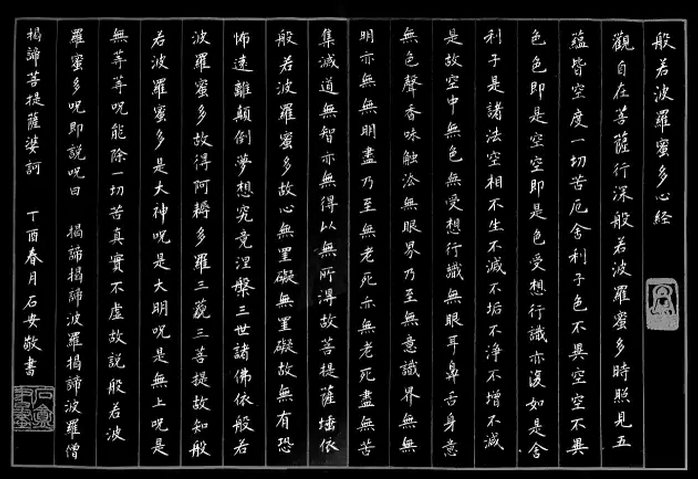 般若波羅蜜多心経
觀自在菩薩行深般若波羅蜜多時照見五
蘊皆空度一切苦厄舍利子色不異空空不異
色色即是空空即是色受想行識亦復如是舍
利子是諸法空相不生不滅不垢不淨不增不減
是故空中無色無受想行識無眼耳鼻舌身意
無色聲香味触法無眼界乃至無意識界無無
明亦無無明盡乃至無老死亦無老死盡無苦
集滅道無智亦無得以無所得故菩提薩埵依
般若波羅蜜多故心無罣礙無罣礙故無有恐
怖遠離顛倒夢想究竟涅槃三世諸佛依般若
波羅蜜多故得阿耨多羅三藐三菩提故知般
若波羅蜜多是大神呪是大明呪是無上呪是
無等等呪能除一切苦真實不虛故説般若波
羅蜜多呪即説呪曰 揭諦揭諦波羅揭諦波羅僧
揭諦菩提薩婆訶 丁酉春月石安敬書